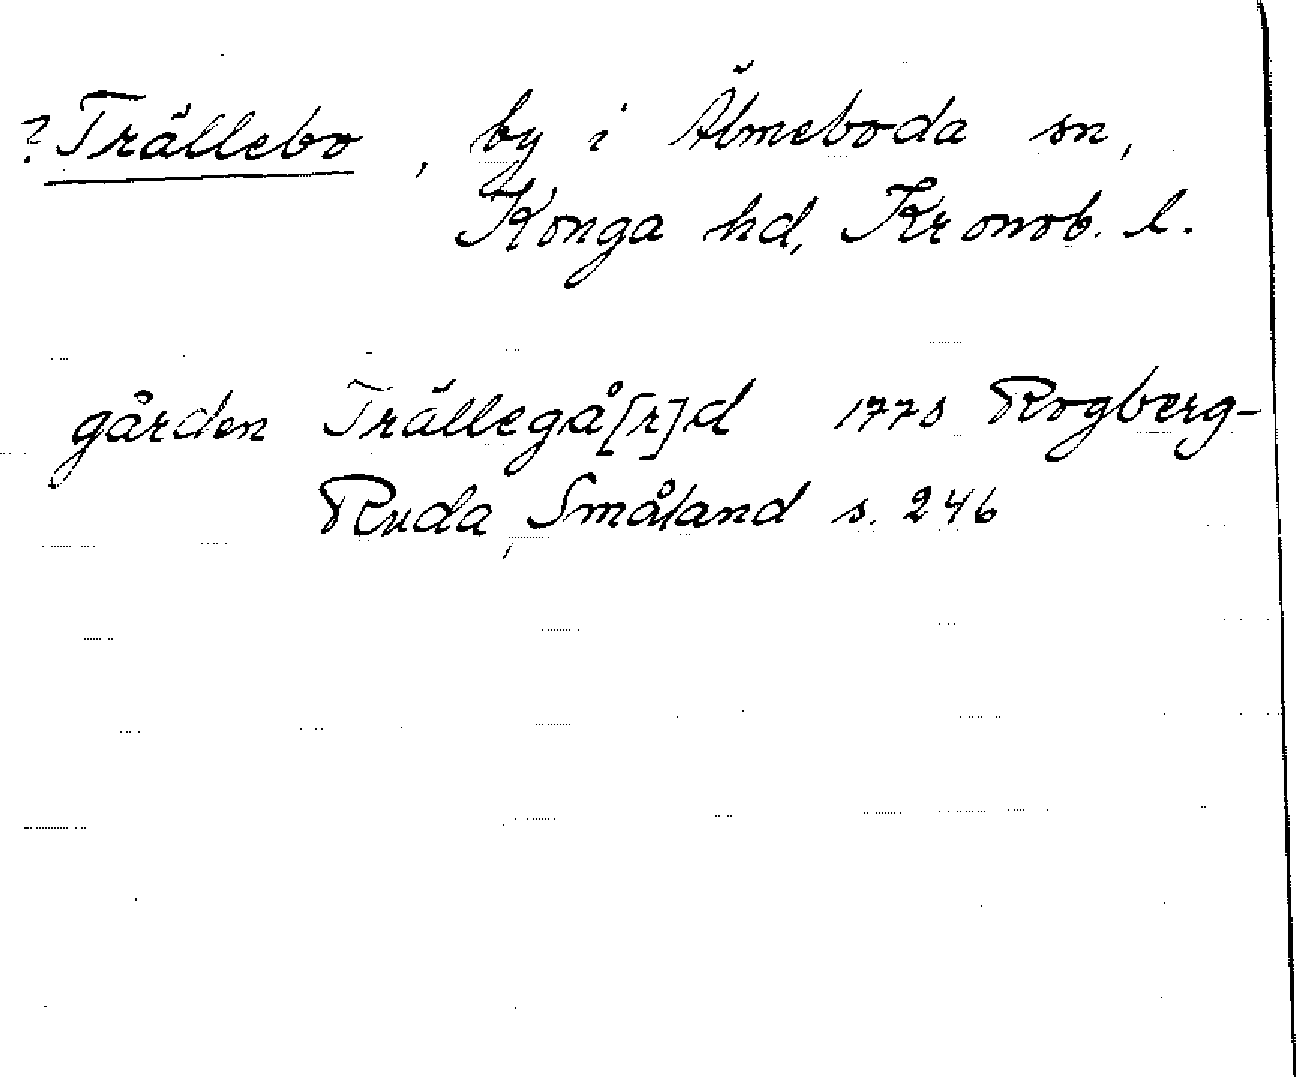 ?Trällebo, by i Älmeboda sn,
Konga hd, Kronob. l.
gården Trällegå[r]d 1770 Rogberg-
Ruda, Småland s. 246